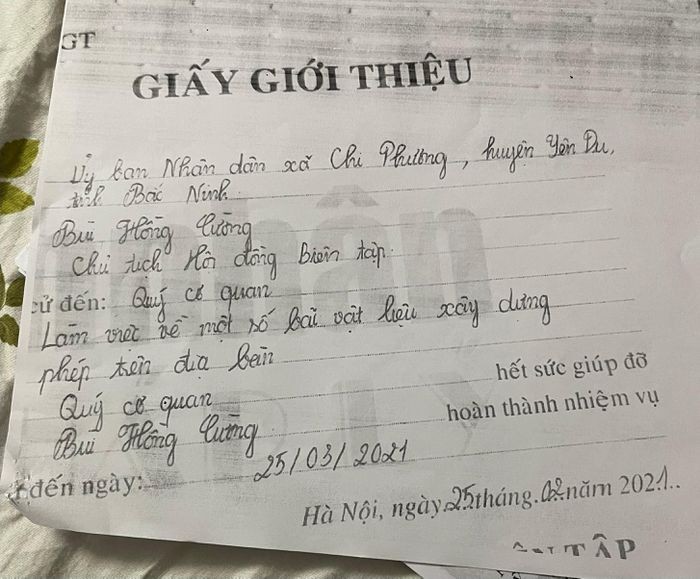 GT
GIẤY GIỚI THIỆU
Uỷ ban Nhân dân xã Chi Phương, huyện Yên Du,
tỉnh Bắc Ninh
Bùi Hồng Cường
Chủ tịch Hôi đồng Biên tập
cử đến: Quý cơ quan
Làm việc về một số bãi vật liệu xây dưng
phép trên địa bàn
Quý cơ quan
hết sức giúp đỡ
Bùi Hồng Cường
hoàn thành nhiệm vụ
đến ngày: 25/03/2021
Hà Nội, ngày 25 tháng 02 năm 2021..
TẬP